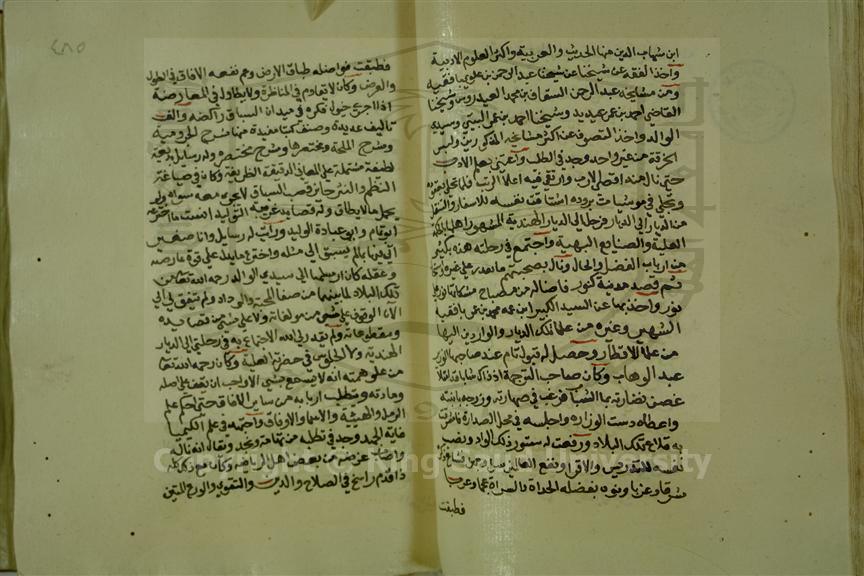 ابن شهاب الدين منها الحديث والعربية واكثر العلوم الادبية
واخذ الفقه عن شيخنا عن شيخنا عبد الرحمن بن علوي بافقيه
ومن مشايخه عبد الرحمن السقاف بن محمد العيدروس وشيخنا
القاضي احمد بن عمر عيديد وشيخنا احمد بن عمر البيتي وسيدي
الوالد واخذ التصوف عن اكثر مشايخه المذكورين ولبس
الخرقة من غير واحد وجد في الطلب واعتنى بعلم الادب
حتى نال منه اقصى الارب وارتقى فيه اعلا الرتب فلما تحلى بعقوده
وتجلى في موشيات بروده اشتاقت نفسه للاسفار والتنقل
من الديار الى الديار فرحل الى الديار الهندية المشهور اهلها بالملكة
العلية والصنايع البهية واجتمع في رحلته هذه بكثير
من ارباب الفضل والحال ونال بصحبتهم ما تعذر على غيره
ثم قصد مدينة كنور فاضاله من مصباح مشكاتها نور على
نور واخذ بها عن السيد الكبير ابن عمه محمد بن عمر بافقيه
الشهير وغيره من علما تلك الديار والواردين اليها
من علما الاقطار وحصل له قبول تام عند صاحبها الوزير
عبد الوهاب وكان صاحب الترجمة اذ ذاك شابا قد امتلا
غصن نضارته بما الشباب فرغب في صهارته وزوجه بابنته
واعطاه دست الوزاره واجلسه في محل الصدارة
به قلاع تلك البلاد ورفعت له ستور ذلك الواد ونصب
نفسه للتدريس والاقرا ونفع العالمين
شرقا وغربا ونوه بفضله الحداة والسراة عجما وعربا
فطبقت
٤٨٥
فطبقت فواضله طباق الارض وعم نفعه الآفاق في الطول
والعرض وكان لا يقاوم في المناظرة ولا يطاول في المعارضة
اذا اجرى خيول فكره في ميدان السباق راكضه والف
تاليف عديدة وصنف كتبا مفيدة منها شرح الجرومية
وشرح الملحة ومختصرها وشرح مختصره وله رسايل بديعة
لطيفة مشتملة على المعاني الدقيقة الظريفة وكان في صياغة
النظم والنثر حايز قصب السباق لا يجري معه سواه ولو
تحمل ما لا يطاق وله قصايد غريبة التوليد انست ما اخترعه
ابو تمام وابي عبادة الوليد ورايت له رسايل وانا صغير
اتى فيها بما لم يسبق الى مثله واخترع ما يدل على قوة عارضته
وعقله كان ارسلها الى سيدي الوالد رحمه الله تعالى من
تلك البلاد لما بينهما من صفا المحبة والوداد ولم يتفق لي الى
الان الوقوف على شي من مولفاته ولا على شي من قصايده
ومقطوعاته ولم يقدر لي الله الاجتماع به في رحلتي الى الديار
الهندية ولا الجلوس في حضرته العلية وكان رحمه الله تعالى
من علو همته انه لا يسمع بشي الا واحب ان يقف على اصله
ومادته ويتطلب اربابه من ساير الآفاق حتى احكم علم
الرمل والهيئة والاسما والاوفاق واجتهد في علم الكيميا
غاية الجهد وجد في تطلبه من تهامة ونجد ويقال انه ناله
واصاب غرضه من بعض اهل الرياضة وكان مع ذلك كله
ذا قدم راسخ في الصلاح والدين والتقوى والورع المتين
Copyright © King Saud University